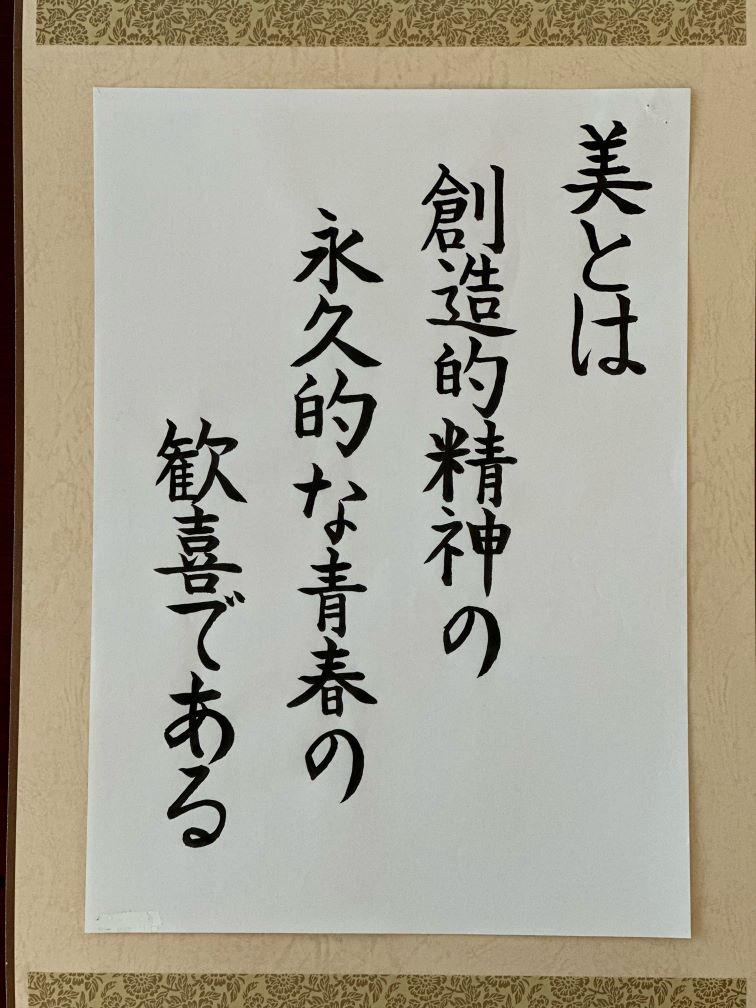 美とは
創造的精神の
永久的な青春の
歓喜である